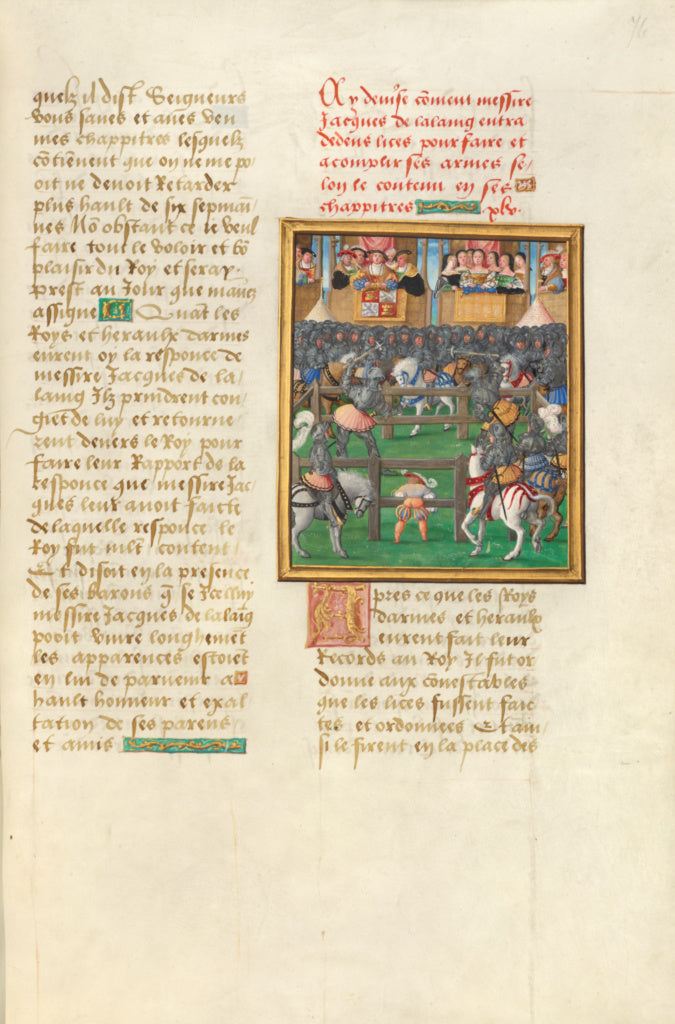 quelz il dist Seigneurs
vous saues et aues veu
mes chappitres lesquelz
cõtiẽnent que on ne me po-
oit ne deuoit Retarder
plus hault de six sepmaĩ
nes Nõ obstant ce ie veul
faire tout le voloir et bõ
plaisir du Roy et seray
prest au Jour que maues
assigne Quãt les
Roys et heraulx darmes
eurent oy la responce de
messire Jacques de la-
laing Ilz prindrent con
giet de luy et retourne
rent deuers le Roy pour
faire leur Rapport de la
responce que messire Jac
ques leur auoit faicte
de laquelle responce le
Roy fut mlt content
Et disoit en la presence
de ses barons q̃ se Icelluy
messire Jacques de lalaĩg
pooit viure longhemẽt
les apparences estoiẽt
en lui de paruenir a
hault honneur et exal
tation de ses parens
et amis
Ay deuise cõment messire
Jacques de lalaing entra
dedens lices pour faire et
acomplir ses armes se/
lon le contenu en ses
chappitres .xlv.
Apres ce que les Roys
darmes et heraulx
eurent fait leur
Records au Roy Il fut or
donne aux cõnestables
que les lices fussent faic
tes et ordonnees Et ain
si le firent en la place des
76